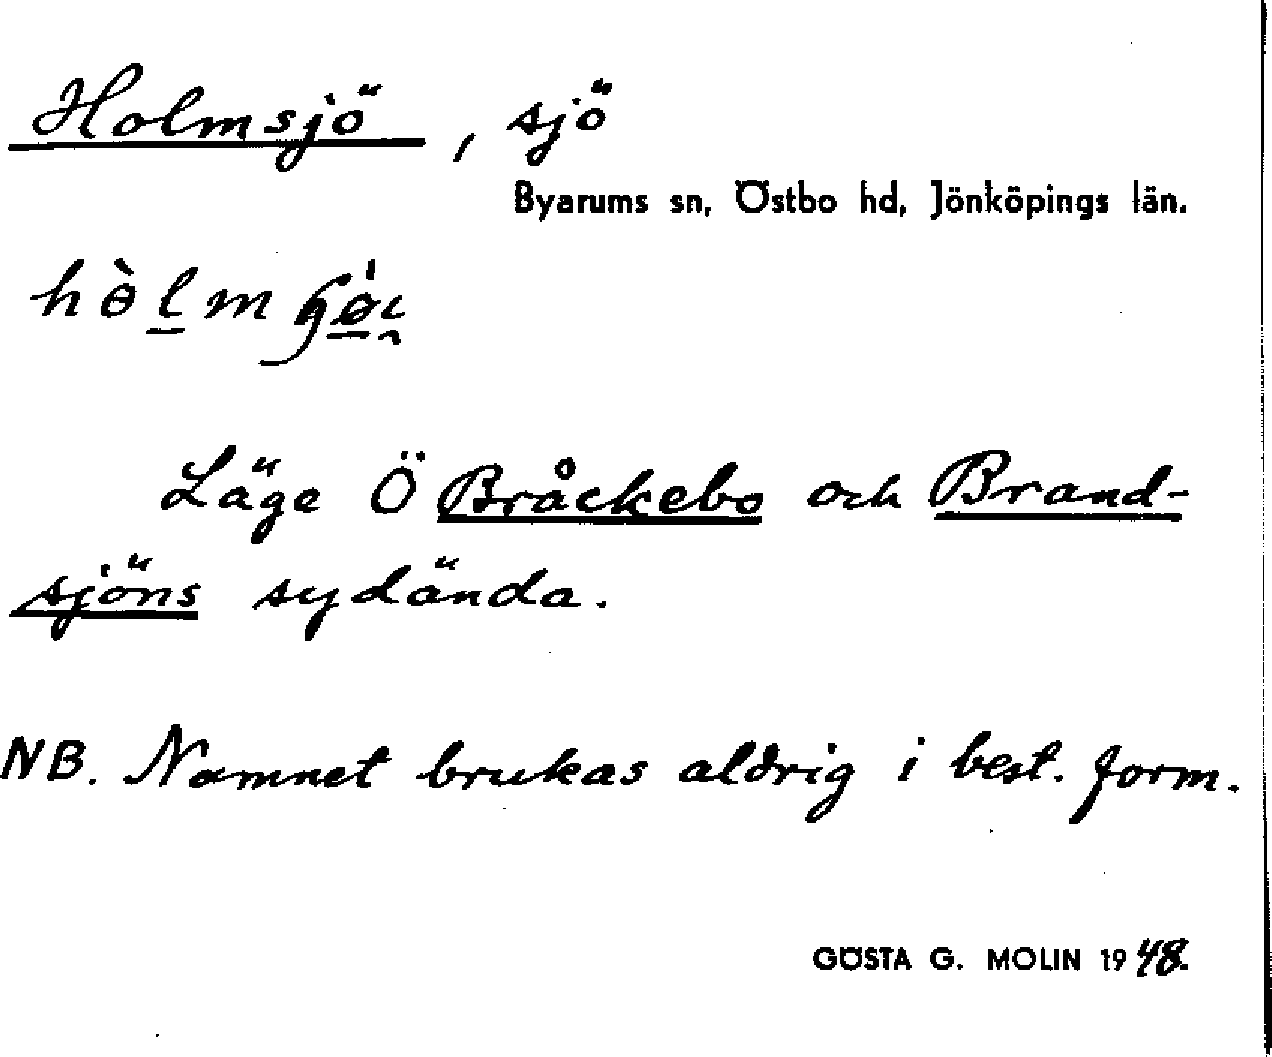 Holmsjö, sjö
Byarums sn, Östbo hd, Jönköpings län.
Läge Ö Bråckebo och Brand-
sjöns sydända.
NB. Namnet brukas aldrig i best. form.
GÖSTA G. MOLIN 1948.